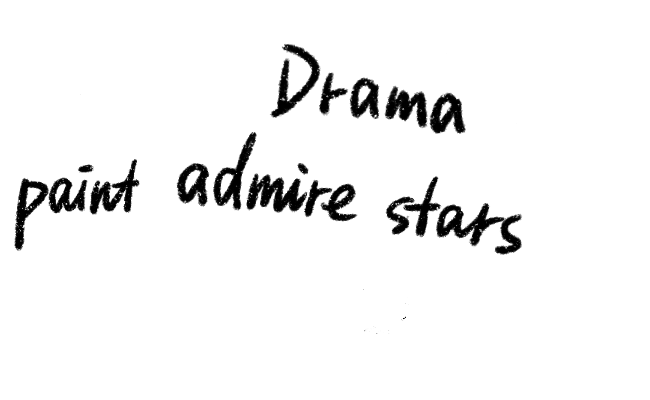 Drama
paint admire stars